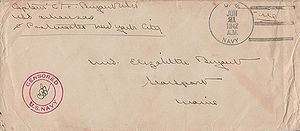 Captain C. F. Bryant USN
USS Arkansas
c/o Postmaster New York City
U.S.
JUN
1942
A.M.
NAVY
Mrs. Elizabeth Bryant
Searsport
Maine
CENSORED
U.S. NAVY